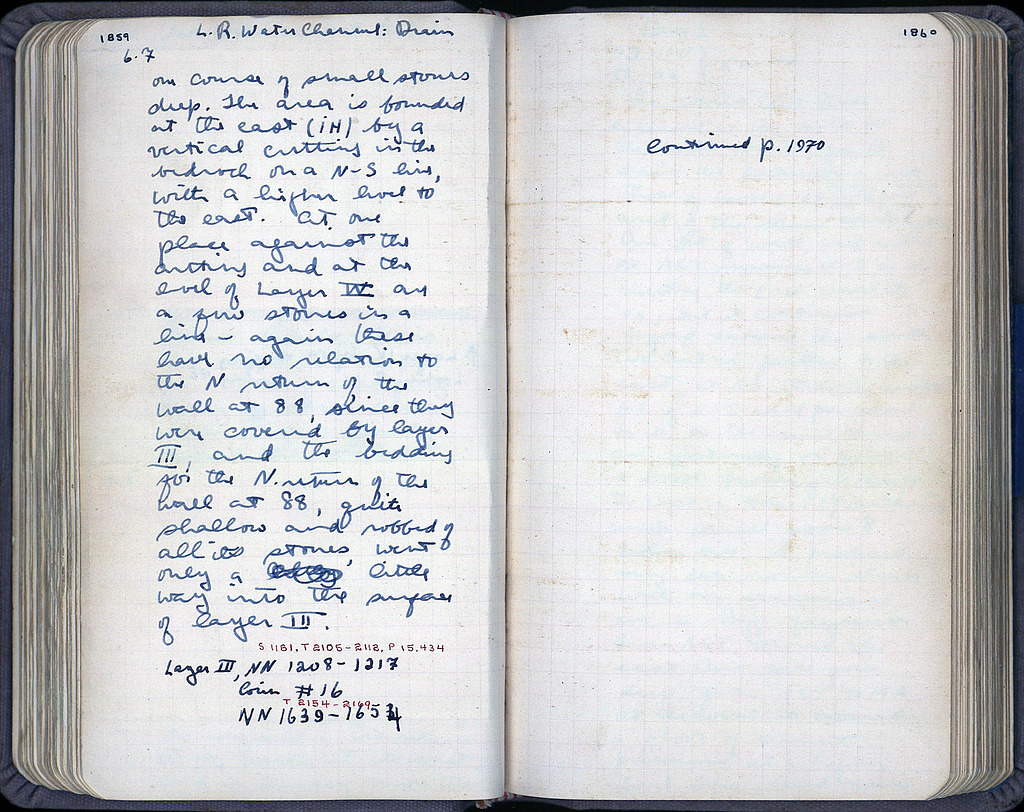 1859
L. R. Water Channel: Drain
6.7
one course of small stones
deep. The area is bounded
at the east (iH) by a
vertical cutting in the
bedrock on a N-S line,
with a higher level to
the east. At one
place against the
cutting and at the
level of Layer IV are
a few stones in a
line - again these
have no relation to
the N return of the
wall at 88, since they
were covered by layer
III, and the bedding
for the N. return of the
wall at 88, quite
shallow and robbed of
all its stones, went
only a little
way into the surface
of layer III.
S 1181, T 2105-2118, P 15,434
Layer III, NN 1208-1217
Coin #16
T 2154-2169
NN 1639-1654
1860
Continued p. 1970